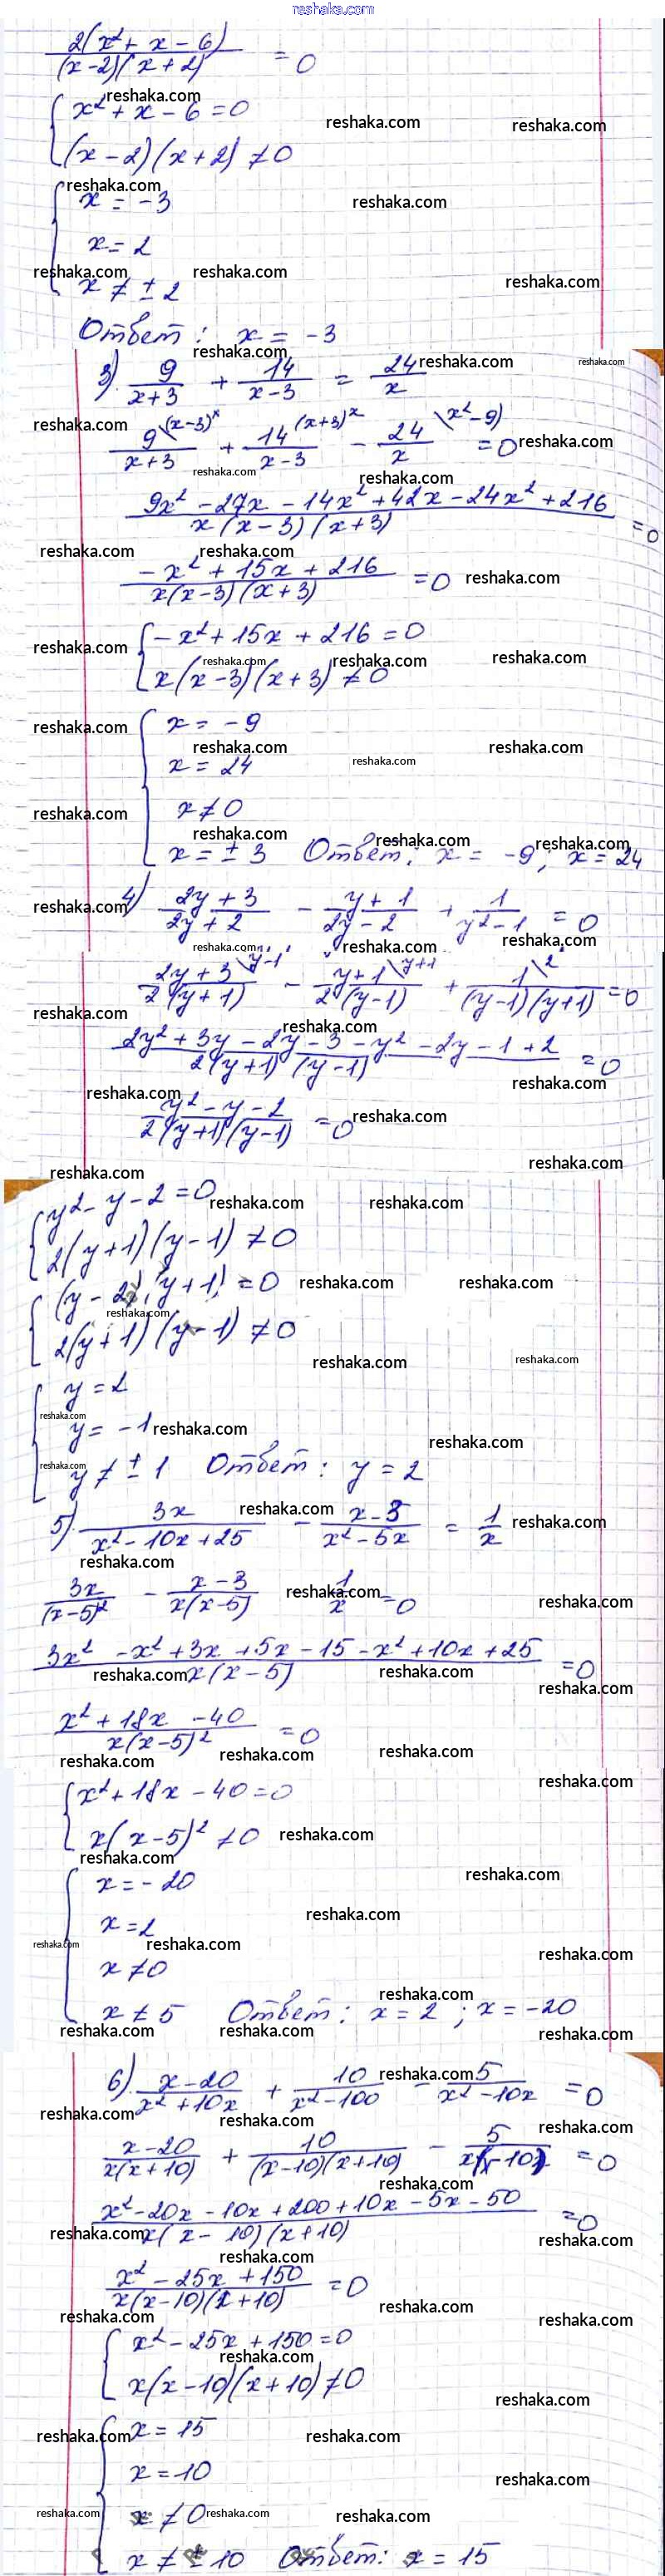 reshaka.com
2(x² + x - 6) / (x-2)(x+2) = 0
{ x² + x - 6 = 0
(x-2)(x+2) ≠ 0
{ x = -3
x = 2
x ≠ ± 2
Ответ: x = -3
3) 9/(x+3) + 14/(x-3) = 24/x
9\(x-3)x/(x+3) + 14\(x+3)x/(x-3) - 24\(x²-9)/x = 0
9x² - 27x - 14x² + 42x - 24x² + 216 / x(x-3)(x+3) = 0
-x² + 15x + 216 / x(x-3)(x+3) = 0
{ -x² + 15x + 216 = 0
x(x-3)(x+3) ≠ 0
{ x = -9
x = 24
x ≠ 0
x = ± 3 Ответ: x = -9; x = 24
4) (2y+3)/(2y+2) - (y+1)/(2y-2) + 1/(y²-1) = 0
2y+3\y-1 / 2(y+1) - y+1\y+1 / 2(y-1) + 1\2 / (y-1)(y+1) = 0
2y² + 3y - 2y - 3 - y² - 2y - 1 + 2 / 2(y+1)(y-1) = 0
y² - y - 2 / 2(y+1)(y-1) = 0
{ y² - y - 2 = 0
2(y+1)(y-1) ≠ 0
{ (y-2)(y+1) = 0
2(y+1)(y-1) ≠ 0
{ y = 2
y = -1
y ≠ ± 1 Ответ: y = 2
5) 3x/(x²-10x+25) - (x-3)/(x²-5x) = 1/x
3x/(x-5)² - (x-3)/x(x-5) - 1/x = 0
3x² - x² + 3x + 5x - 15 - x² + 10x + 25 / x(x-5) = 0
x² + 18x - 40 / x(x-5)² = 0
{ x² + 18x - 40 = 0
x(x-5)² ≠ 0
{ x = -20
x = 2
x ≠ 0
x ≠ 5 Ответ: x = 2; x = -20
6) (x-20)/(x²+10x) + 10/(x²-100) - 5/(x²-10x) = 0
(x-20)/x(x+10) + 10/(x-10)(x+10) - 5/x(x-10) = 0
x² - 20x - 10x + 200 + 10x - 5x - 50 / x(x-10)(x+10) = 0
x² - 25x + 150 / x(x-10)(x+10) = 0
{ x² - 25x + 150 = 0
x(x-10)(x+10) ≠ 0
{ x = 15
x = 10
x ≠ 0
x ≠ ± 10 Ответ: x = 15